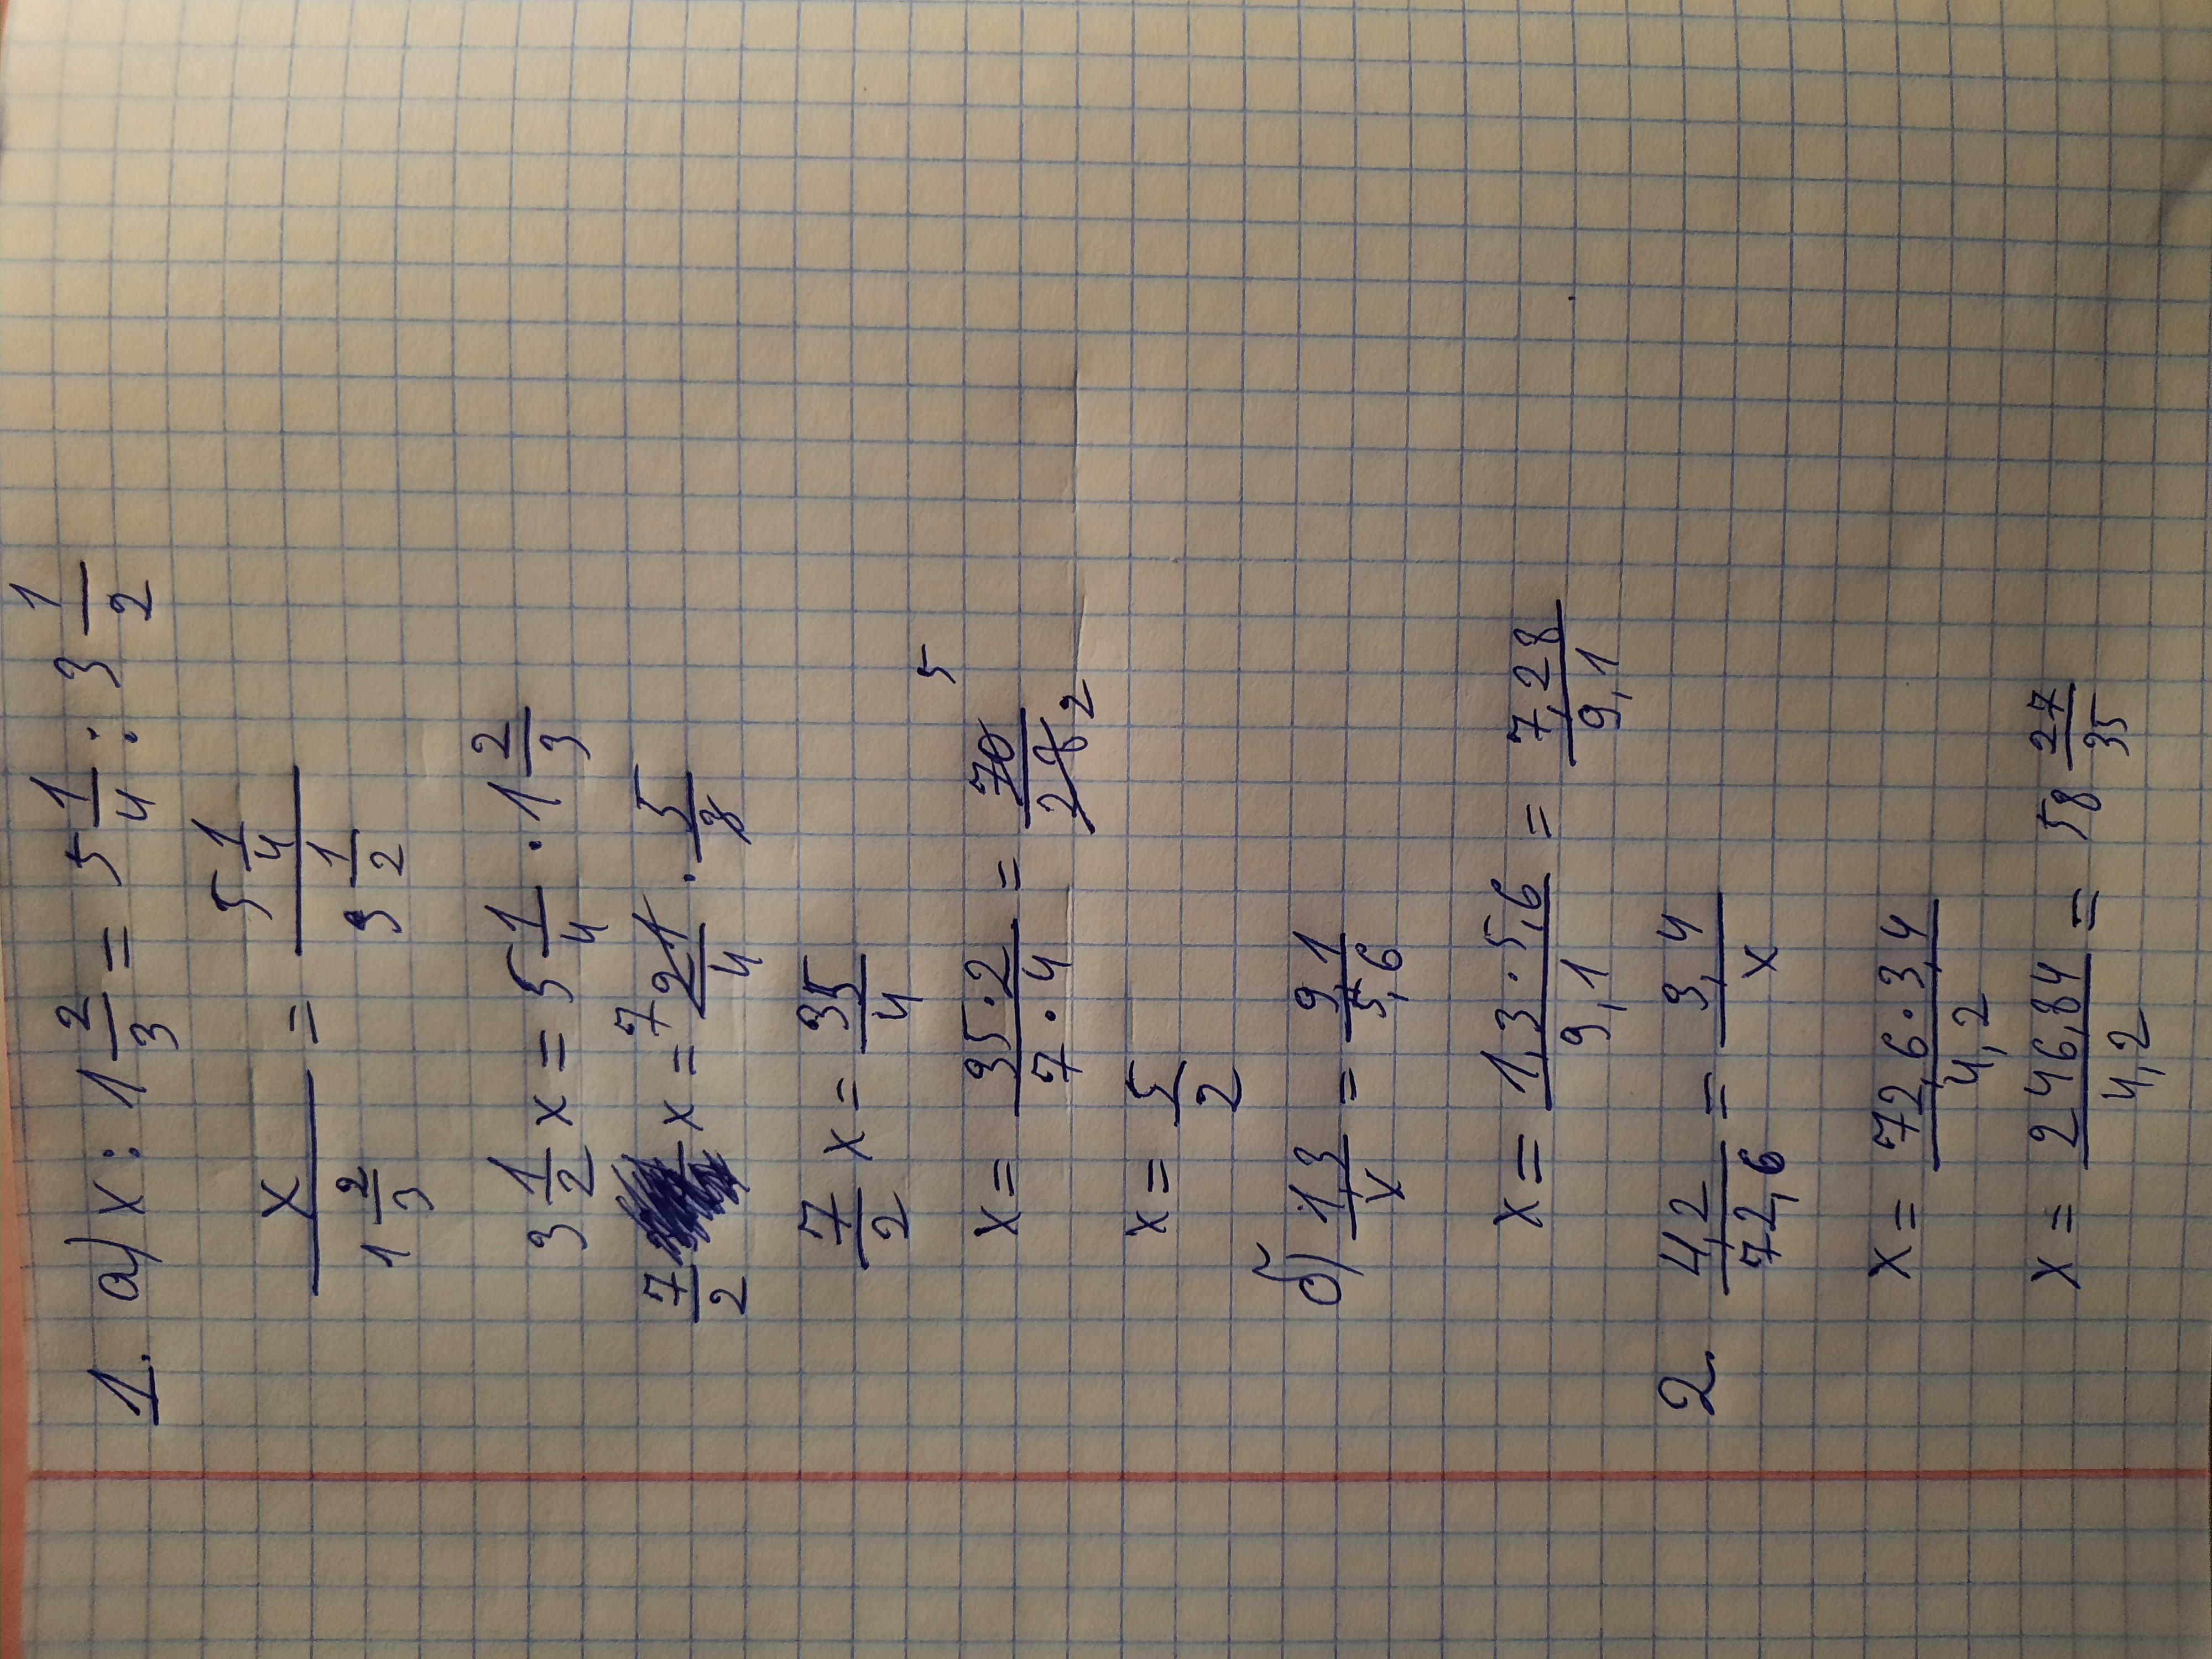 1. а) x : 1 2/3 = 5 1/4 : 3 1/2
x / 1 2/3 = 5 1/4 / 3 1/2
3 1/2 x = 5 1/4 · 1 2/3
7/2 x = 7 21/4 · 5/3
7/2 x = 35/4
x = 35·2 / 7·4 = 70/28 5 2
x = 5/2
б) 1,3/x = 9,1/5,6
x = 1,3·5,6 / 9,1 = 7,28/9,1
2. 4,2/72,6 = 3,4/x
x = 72,6·3,4 / 4,2
x = 246,84/4,2 = 58 27/35